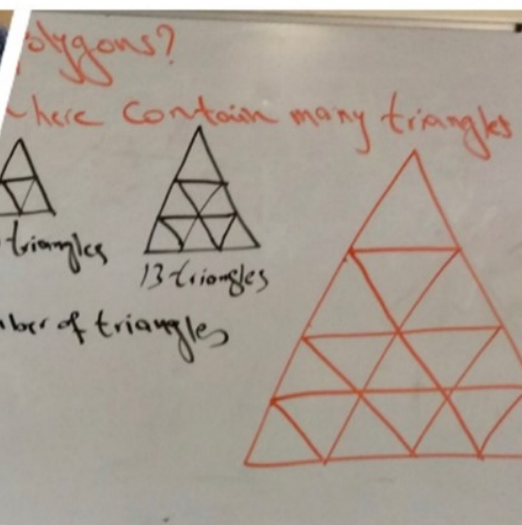 olygons?
here contain many triangles
triangles
13 triangles
ber of triangles